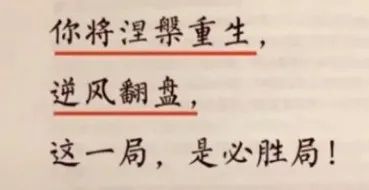 你将涅槃重生，
逆风翻盘，
这一局，是必胜局！